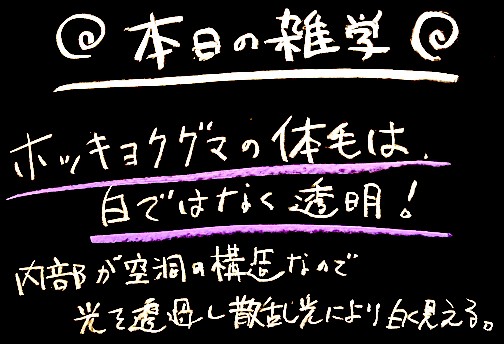 本日の雑学
ホッキョクグマの体毛は、
白ではなく透明！
内部が空洞の構造なので
光を透過し散乱光により白く見える。